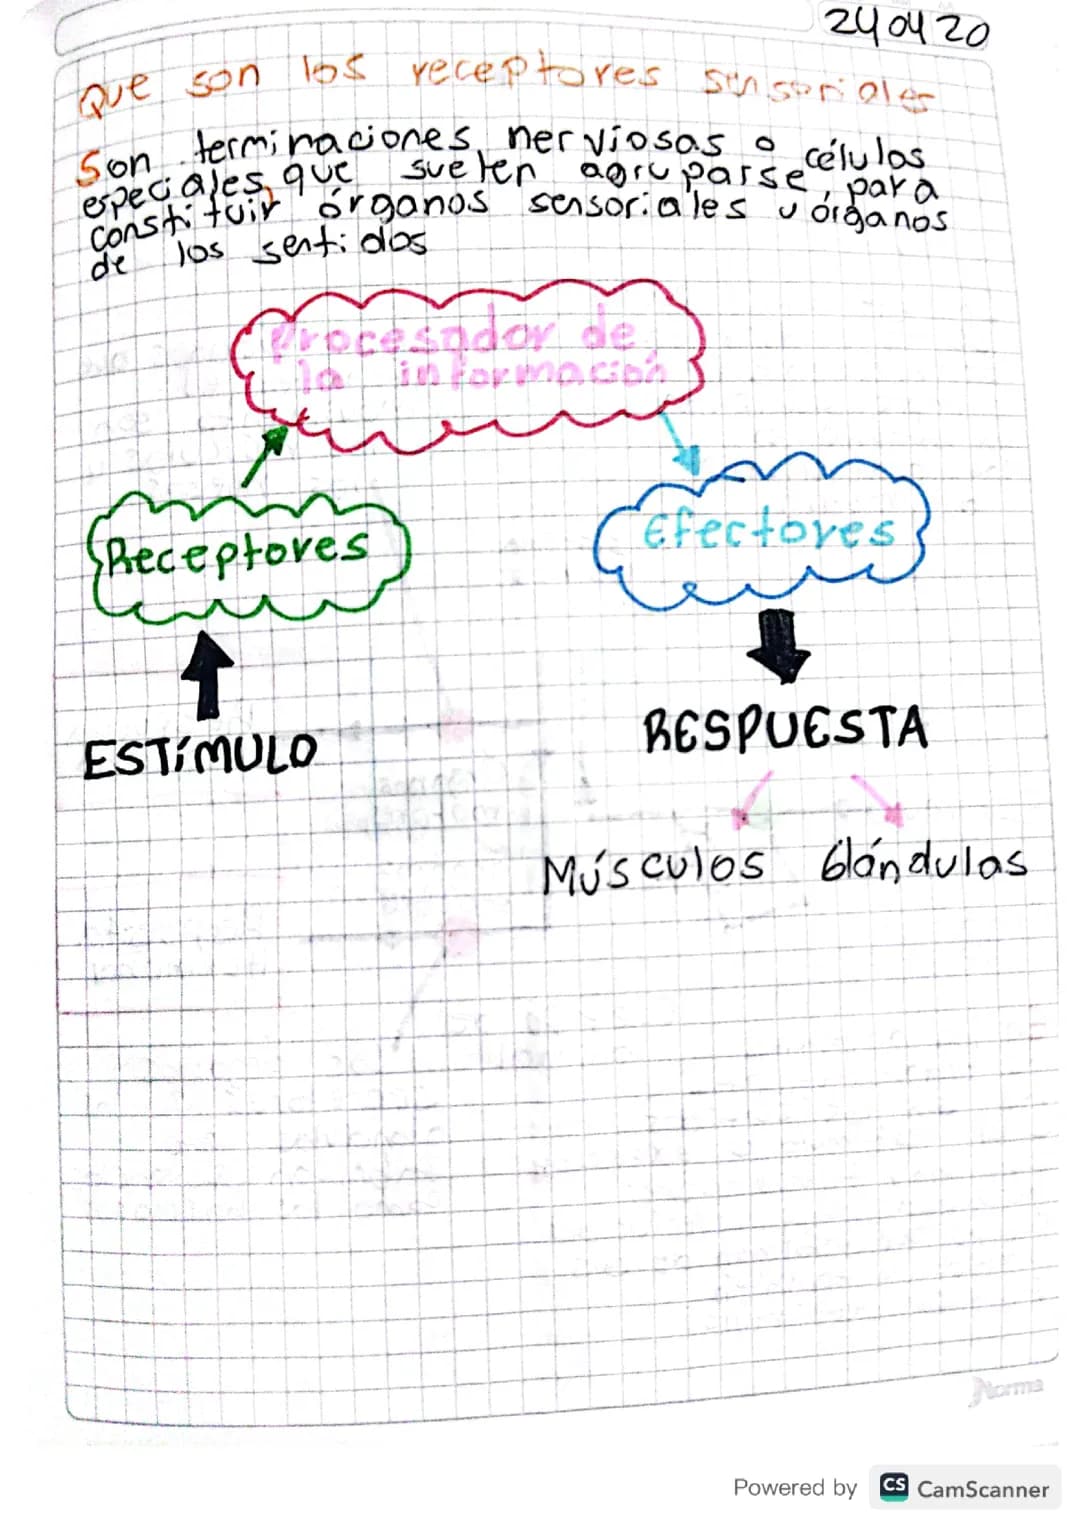 240420
Que son los receptores sensoriales
Son terminaciones nerviosas o células
especiales, que suelen agruparse, para
constituir órganos sensoriales u órganos
de los sentidos
Procesador de
la información
Receptores
Efectores
ESTÍMULO
RESPUESTA
Músculos Glándulas
Norma
Powered by CS CamScanner